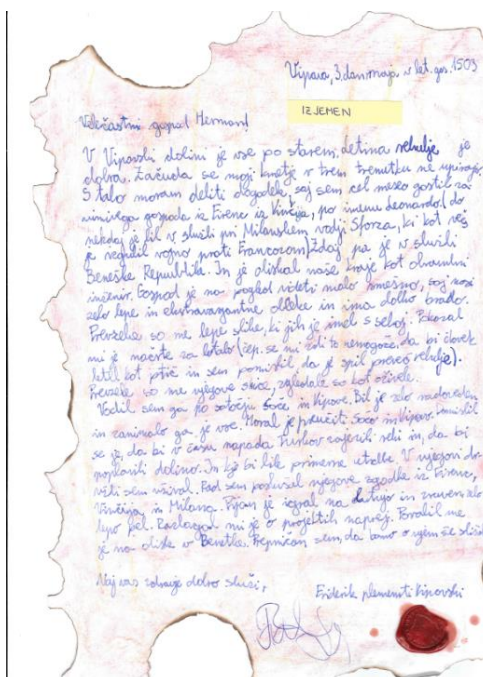 Vipava, 3. dan maja v let. gos. 1503
IZJEMEN
Veličastni gospod Herman!
V Vipavski dolini je vse po starem, letina rebulje je
dobra. Začuda se moji kmetje v tem trenutku ne upirajo.
S tabo moram deliti dogodek, saj sem cel mesec gostil za
nimivega gospoda iz Firenc iz Vinčija, po imenu Leonardo (do
nekdaj je bil v službi pri Milanskem vodji Sforza, ki kot veš
je izgubil vojno proti Francozom). Zdaj pa je v službi
Beneške Republike. In je obiskal naše kraje kot obrambni
inženir. Gospod je na pogled videti malo smešno, saj nosi
zelo lepe in ekstravagantne obleke in ima dolgo brado.
Prevzele so me lepe slike, ki jih je imel s seboj. Pokazal
mi je načrte za letalo (čep. se mi zdi to nemogoče, da bi človek
letel kot ptič in sem pomislil da je spil preveč rebulje).
Prevzele so me njegove skice, zgledale so kot oživele.
Vodil sem ga po sotočju Soče in Vipave. Bil je zelo radoveden
in zanimalo ga je vse. Moral je preučiti Sočo in Vipavo. Domislil
se je, da bi v času napada Turkov zajezili reki in, da bi
poplavili dolino. In kje bi bile primerne utrdbe. V njegovi dru-
žbi sem užival. Rad sem poslušal njegove zgodbe iz Firenc,
Vinčija, in Milana. Pijan je igral na lutnjo in zraven zelo
lepo pel. Razlagal mi je o projektih naprej. Povabil me
je na obisk v Benetke. Prepričan sem, da bomo o njem še slišali.
Naj vas zdravje dobro služi,
Friderik plemeniti Vipavski